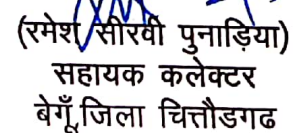 (रमेश सीरवी पुनाड़िया)
सहायक कलेक्टर
बेगूँ,जिला चित्तौडगढ